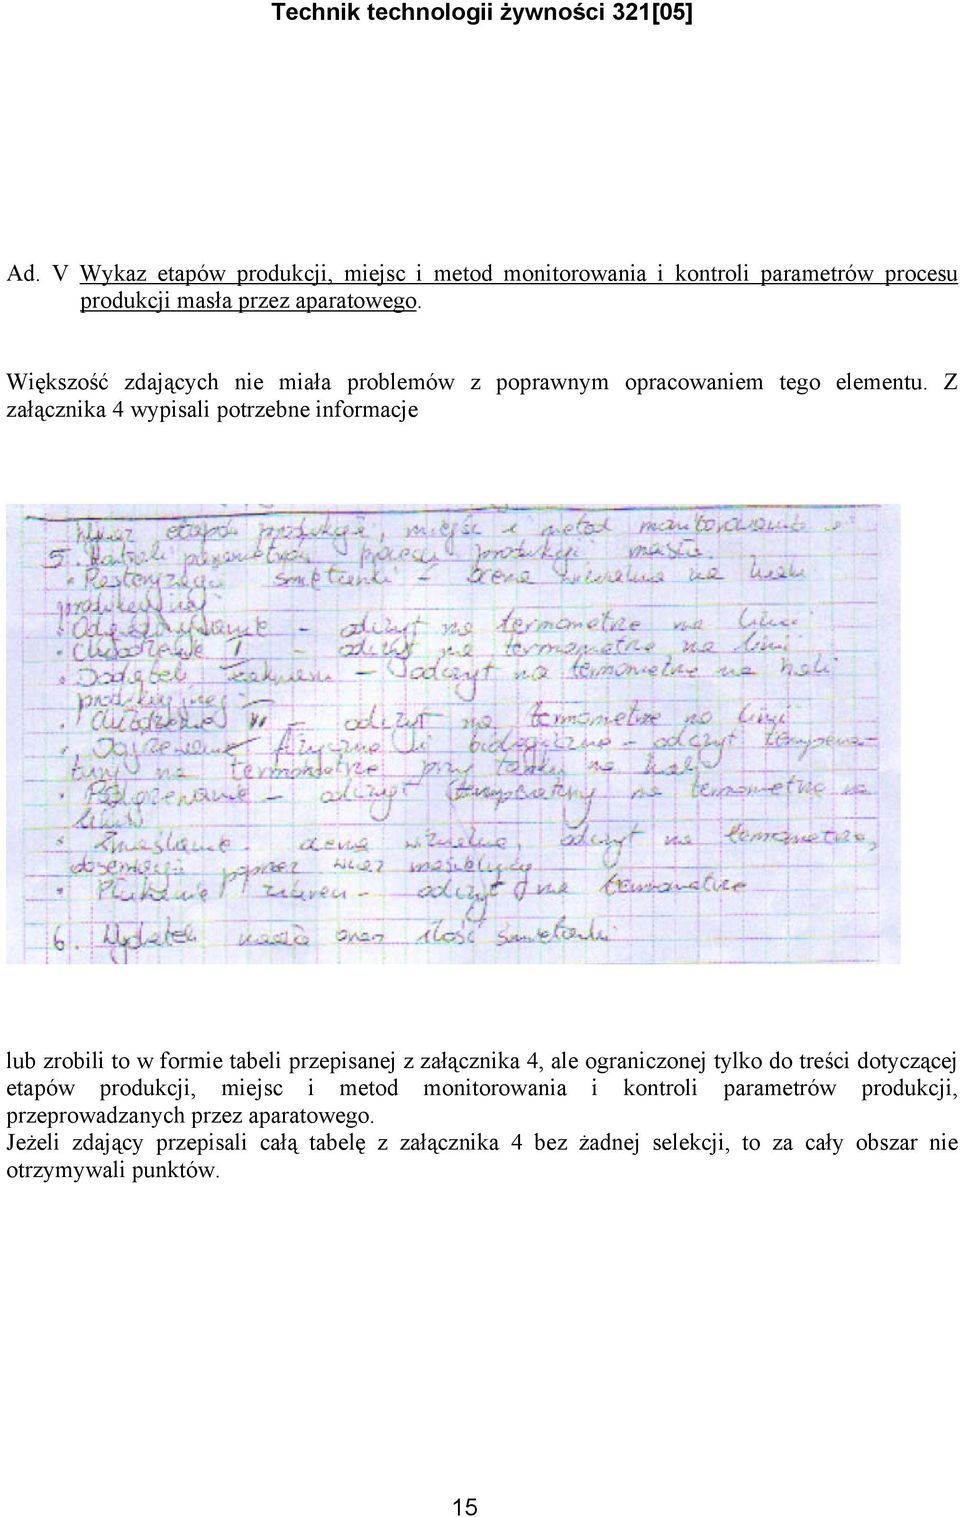 Technik technologii żywności 321[05]
Ad. V Wykaz etapów produkcji, miejsc i metod monitorowania i kontroli parametrów procesu
produkcji masła przez aparatowego.
Większość zdających nie miała problemów z poprawnym opracowaniem tego elementu. Z
załącznika 4 wypisali potrzebne informacje
Wykaz etapów produkcji, miejsc i metod monitorowania i
5. Kontroli parametrów procesu produkcji masła.
• Pasteryzacji śmietanki – ocena wizualna na hali
produkcyjnej
• – odczyt na termometrze na linii
• Chłodzenie I – odczyt na termometrze na linii
• zakwasu – odczyt na termometrze na hali
produkcyjnej
• Chłodzenie II – odczyt na termometrze na linii
• Dojrzewanie fizyczne i biologiczne – odczyt tempera-
tury na termometrze przy tanku na hali
• – odczyt temperatury na termometrze na
linii
• Zmaślanie – ocena wizualna, odczyt na termometrze,
poprzez
• Płukanie ziaren – odczyt na termometrze
6. Wydatek masła oraz ilość śmietanki
lub zrobili to w formie tabeli przepisanej z załącznika 4, ale ograniczonej tylko do treści dotyczącej
etapów produkcji, miejsc i metod monitorowania i kontroli parametrów produkcji,
przeprowadzanych przez aparatowego.
Jeżeli zdający przepisali całą tabelę z załącznika 4 bez żadnej selekcji, to za cały obszar nie
otrzymywali punktów.
15